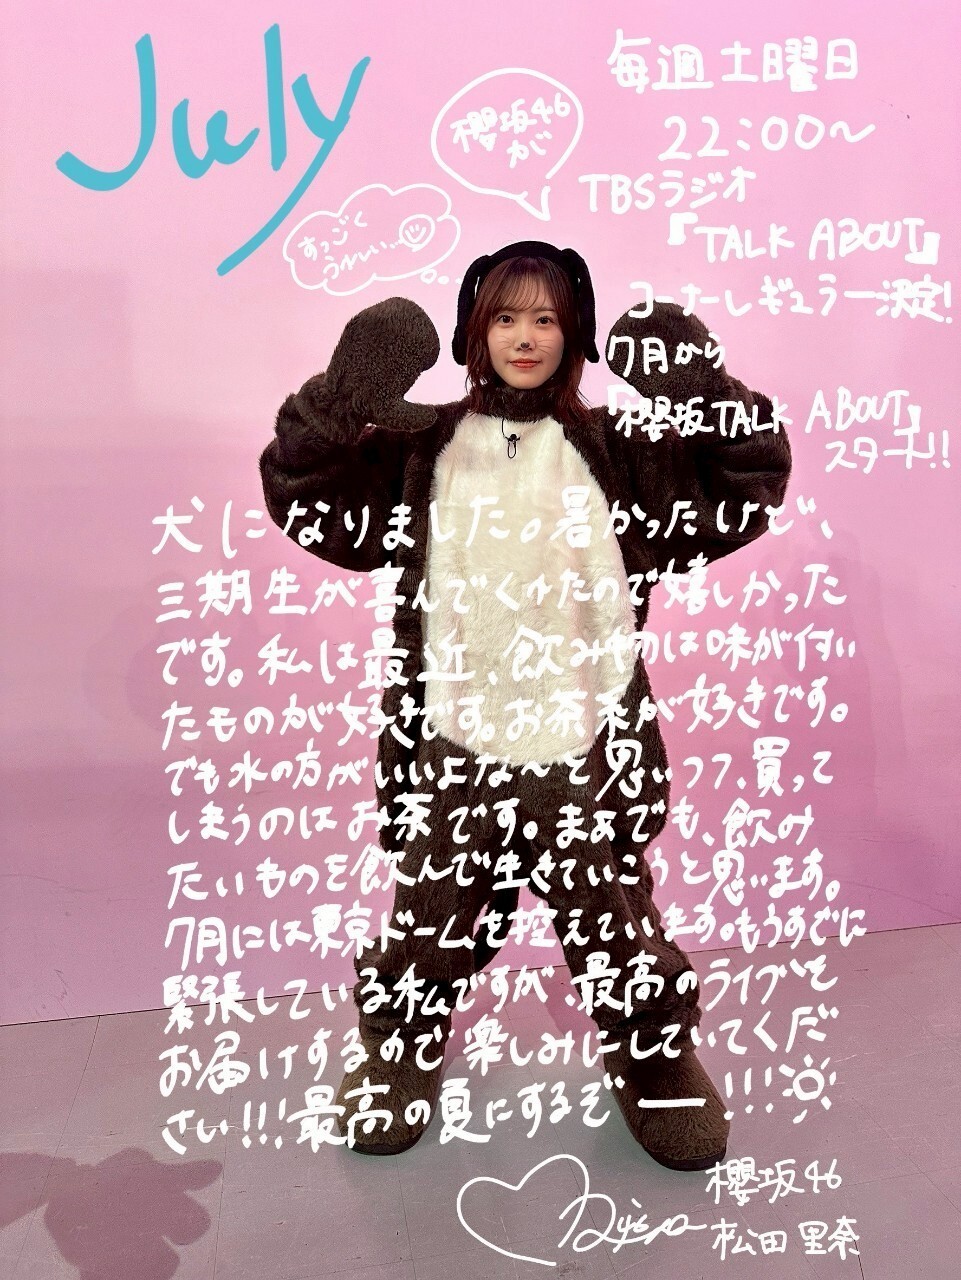 July
毎週土曜日
22:00〜
TBSラジオ
『TALK ABOUT』
コーナーレギュラー決定!
7月から
『櫻坂TALK ABOUT』
スタート!!
櫻坂46
が
すっごく
うれしい...
犬になりました。暑かったけど、
三期生が喜んでくれたので嬉しかった
です。私は最近、飲み物は味が付い
たものが好きです。お茶系が好きです。
でも水の方がいいよな〜と思いつつ、買って
しまうのはお茶です。まぁでも、飲み
たいものを飲んで生きていこうと思います。
7月には東京ドームを控えています。もうすでに
緊張している私ですが、最高のライブを
お届けするので楽しみにしていてくだ
さい!!!最高の夏にするぞー!!!
櫻坂46
松田里奈